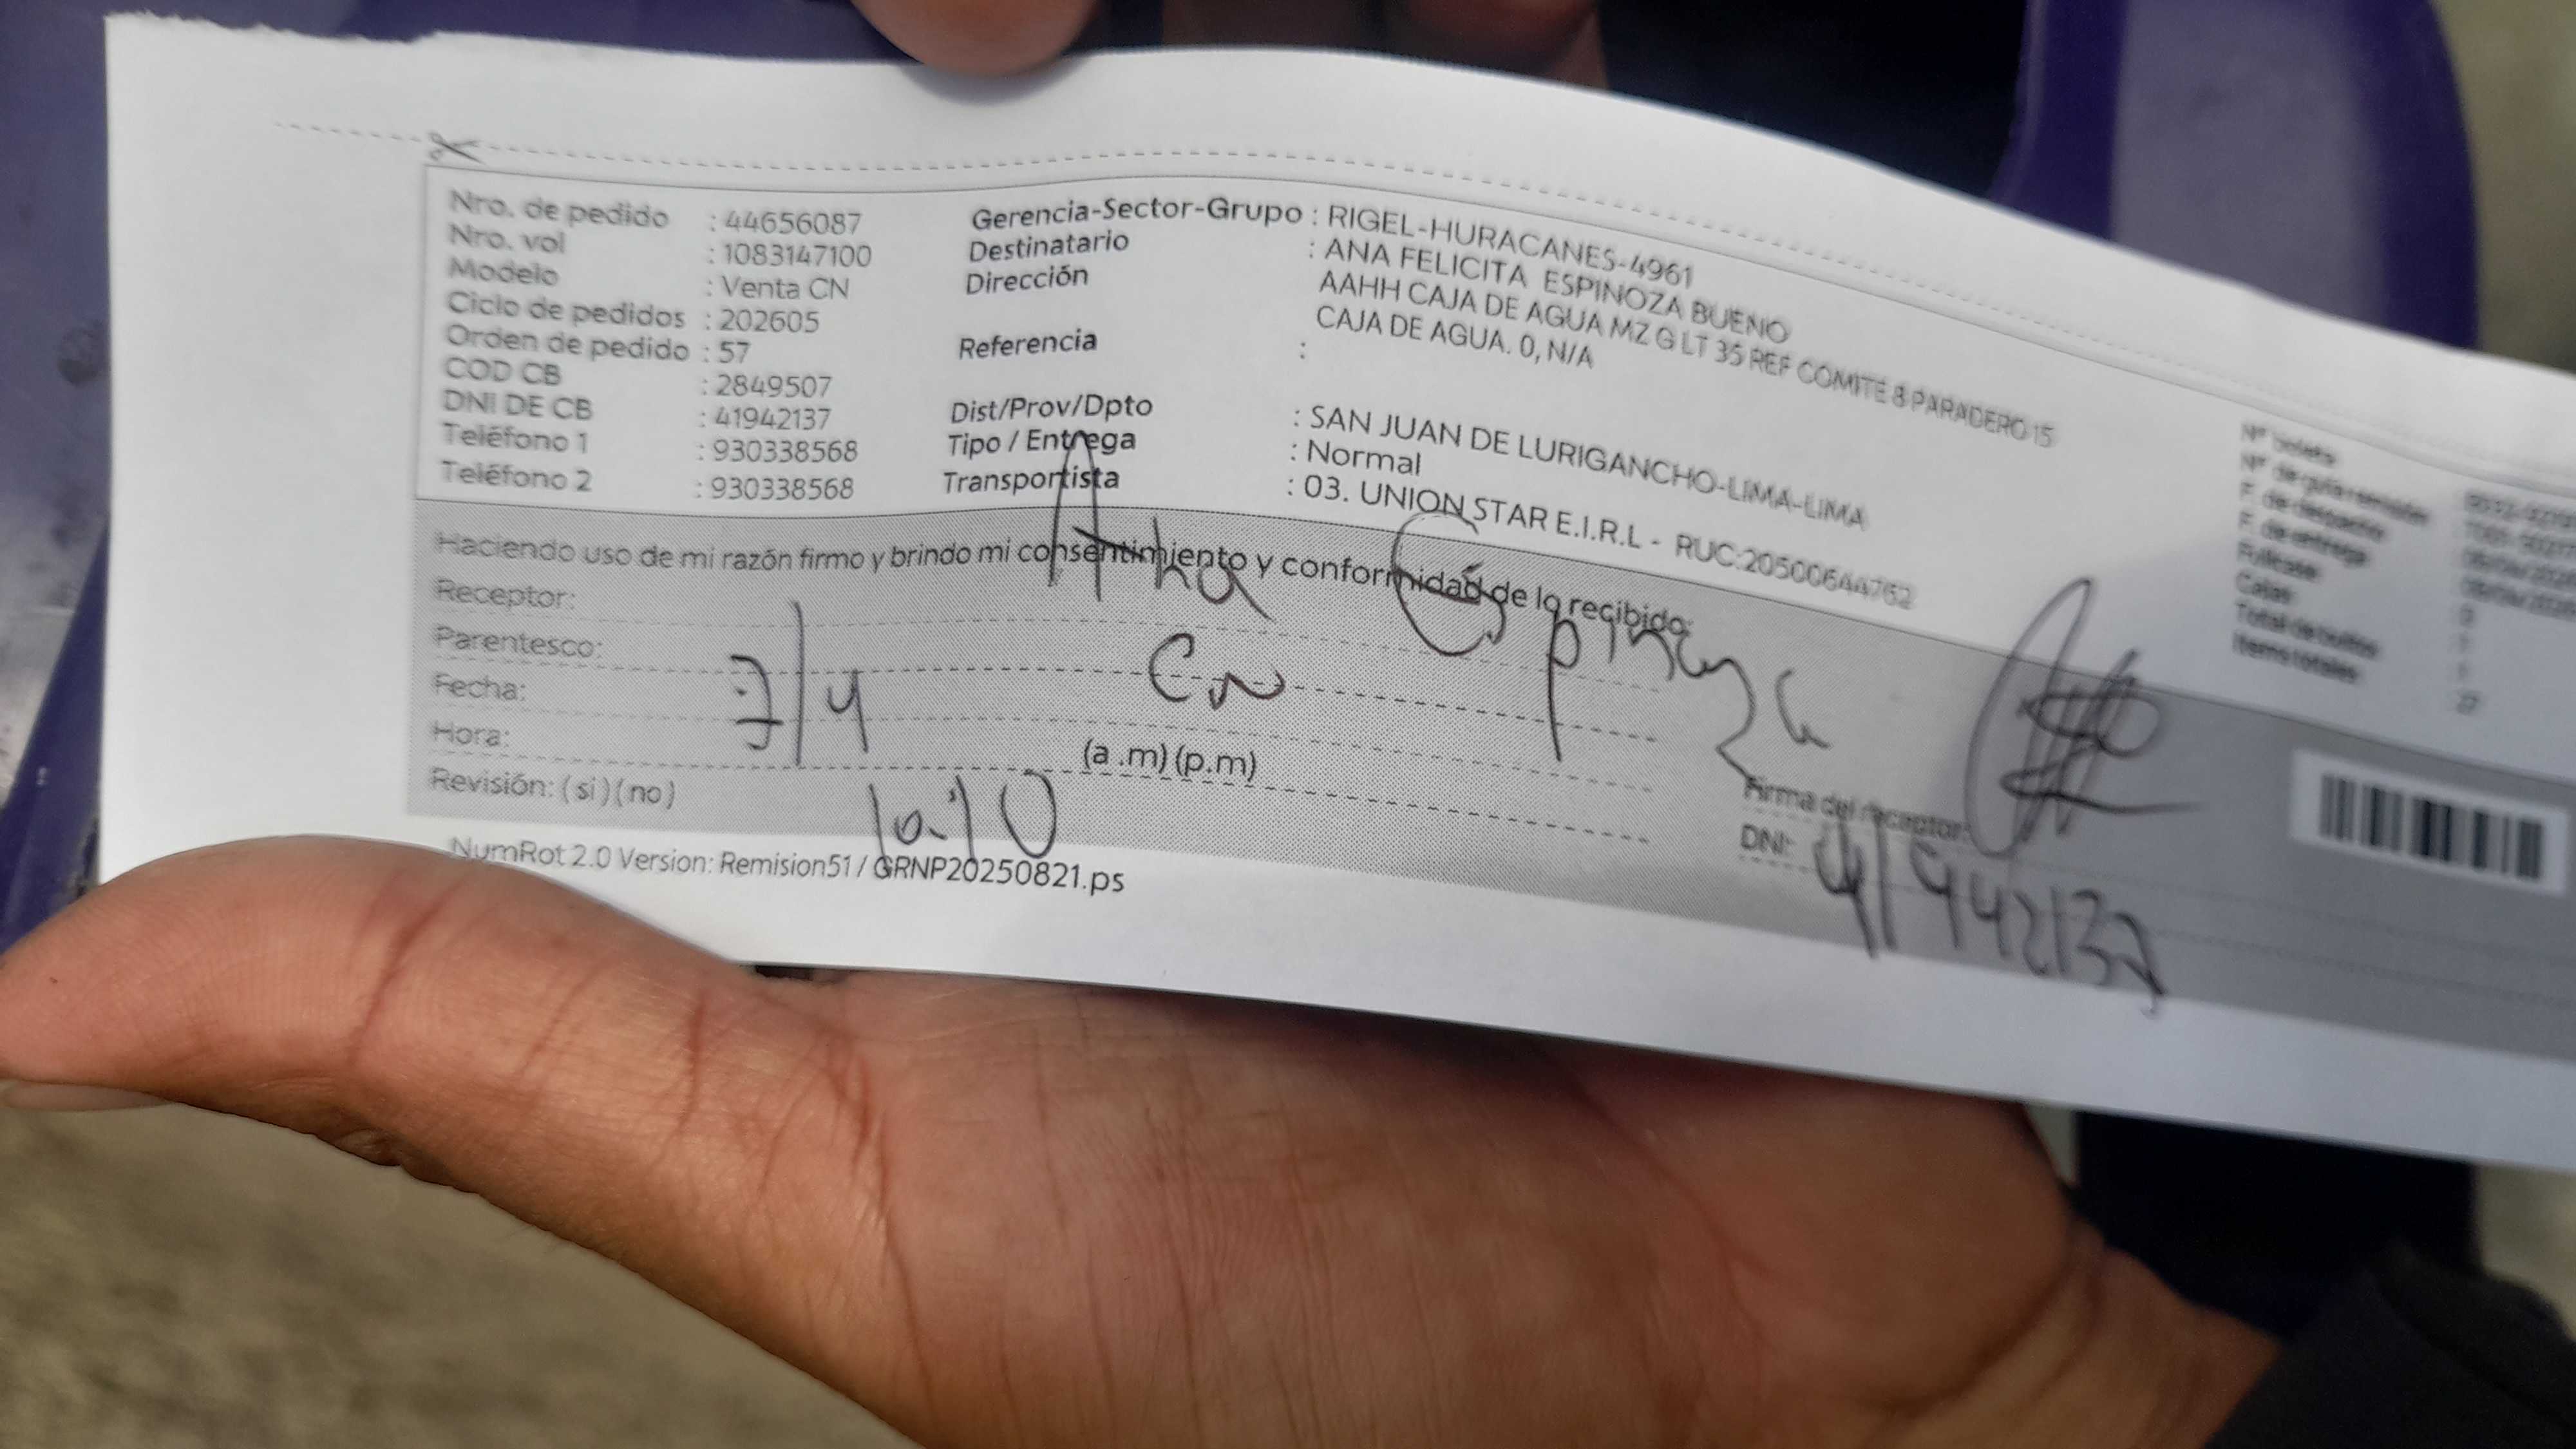 Nro. de pedido : 44656087
Nro. vol : 1083147100
Modelo : Venta CN
Ciclo de pedidos : 202605
Orden de pedido : 57
COD CB : 2849507
DNI DE CB : 41942137
Teléfono 1 : 930338568
Teléfono 2 : 930338568
Gerencia-Sector-Grupo : RIGEL-HURACANES-4961
Destinatario : ANA FELICITA ESPINOZA BUENO
Dirección AAHH CAJA DE AGUA MZ G LT 35 REF COMITE 8 PARADERO 15
CAJA DE AGUA. 0, N/A
Referencia :
Dist/Prov/Dpto : SAN JUAN DE LURIGANCHO-LIMA-LIMA
Tipo / Entrega : Normal
Transportista : 03. UNION STAR E.I.R.L - RUC:20500644762
Nº boleta
Nº de guía remisión
F. de despacho
F. de entrega
Fullcase 0
Cajas 1
Total de bultos 1
Items totales 27
Haciendo uso de mi razón firmo y brindo mi consentimiento y conformidad de lo recibido:
Receptor: Ana Espinoza
Parentesco: CN
Fecha: 7/4
Hora: 10:10 (a .m) (p.m)
Revisión: (si) (no)
Firma del receptor:
DNI: 41942137
NumRot 2.0 Version: Remision51 / GRNP20250821.ps